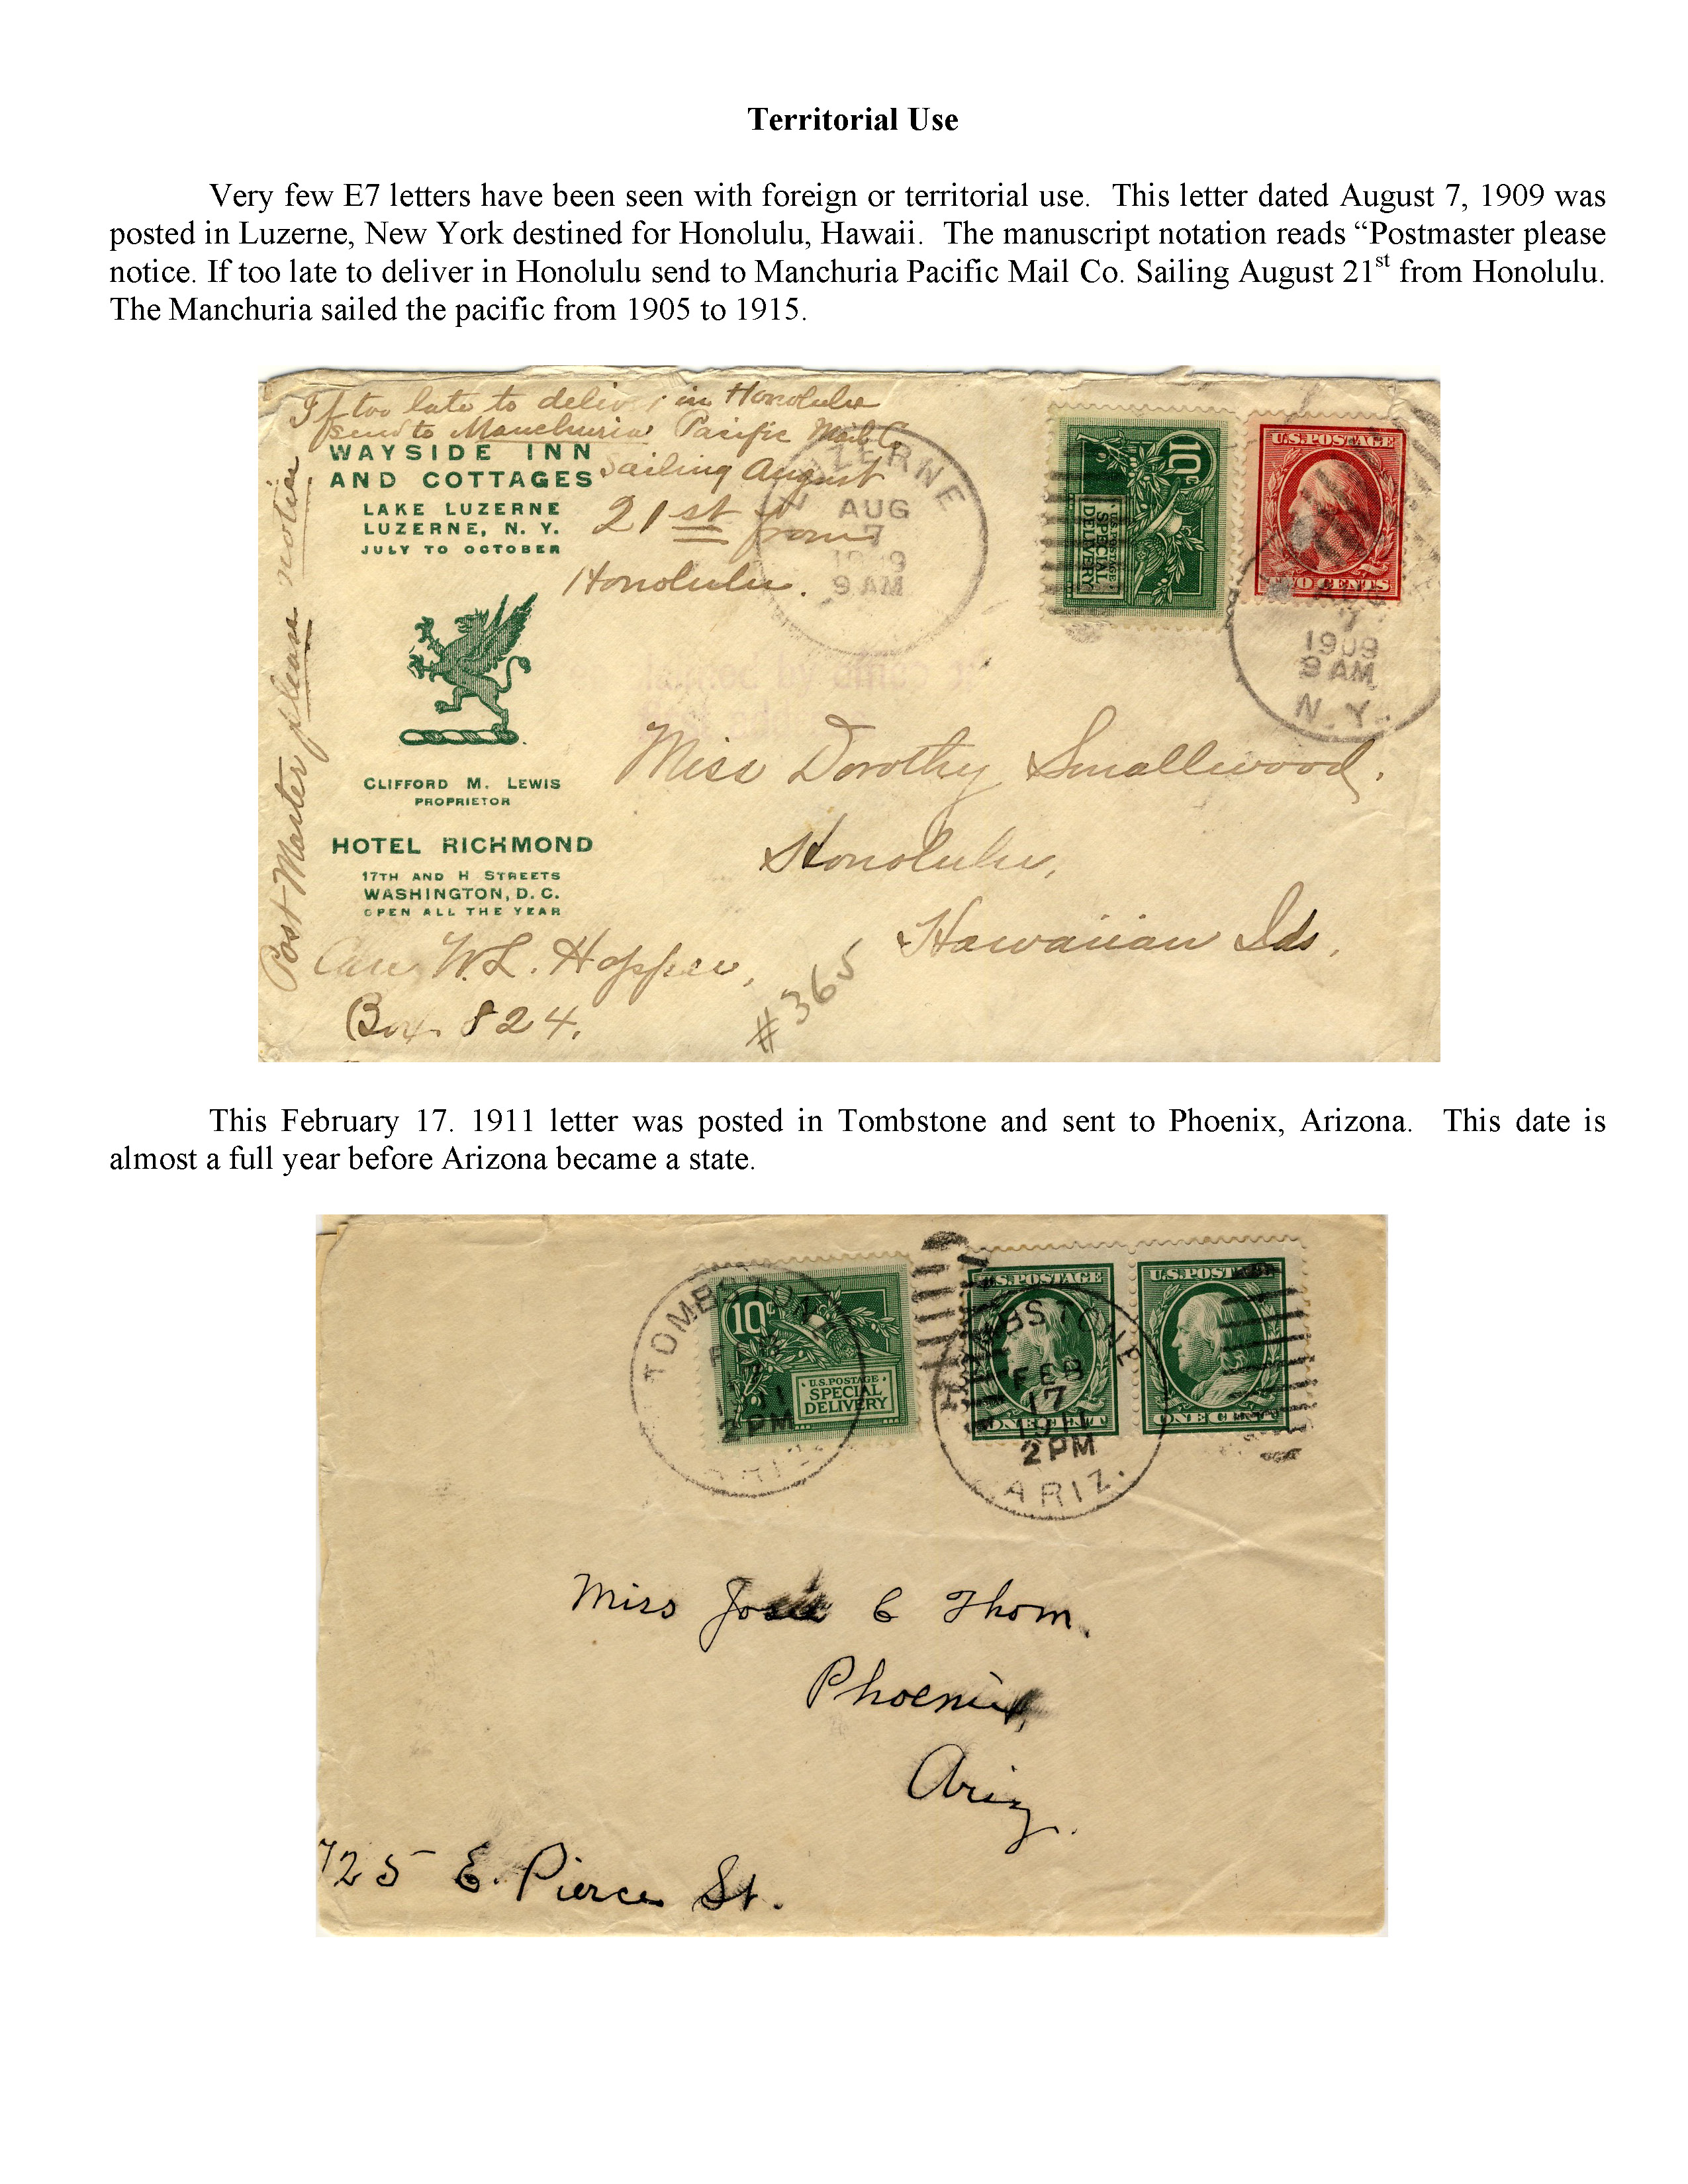 Territorial Use
Very few E7 letters have been seen with foreign or territorial use. This letter dated August 7, 1909 was
posted in Luzerne, New York destined for Honolulu, Hawaii. The manuscript notation reads “Postmaster please
notice. If too late to deliver in Honolulu send to Manchuria Pacific Mail Co. Sailing August 21st from Honolulu.
The Manchuria sailed the pacific from 1905 to 1915.
If too late to deliver in Honolulu
send to Manchuria Pacific Mail Co
Sailing August
21st from
Honolulu.
Post Master please notice
WAYSIDE INN
AND COTTAGES
LAKE LUZERNE
LUZERNE, N. Y.
JULY TO OCTOBER
CLIFFORD M. LEWIS
PROPRIETOR
HOTEL RICHMOND
17TH AND H STREETS
WASHINGTON, D. C.
OPEN ALL THE YEAR
LUZERNE
AUG
7
1909
9 AM
10c
U.S. POSTAGE
SPECIAL
DELIVERY
U.S. POSTAGE
TWO CENTS
7
1909
9 AM
N. Y.
Miss Dorothy Smallwood,
Honolulu,
Hawaiian Ids,
Care W. L. Hopper,
Box 824,
#365
This February 17. 1911 letter was posted in Tombstone and sent to Phoenix, Arizona. This date is
almost a full year before Arizona became a state.
TOMBSTONE
FEB
17
1911
2 PM
ARIZ.
10c
U.S. POSTAGE
SPECIAL
DELIVERY
U.S. POSTAGE
ONE CENT
U.S. POSTAGE
ONE CENT
TOMBSTONE
FEB
17
1911
2 PM
ARIZ.
Miss Josie C Thom.
Phoenix,
Ariz.
725 E. Pierce St.